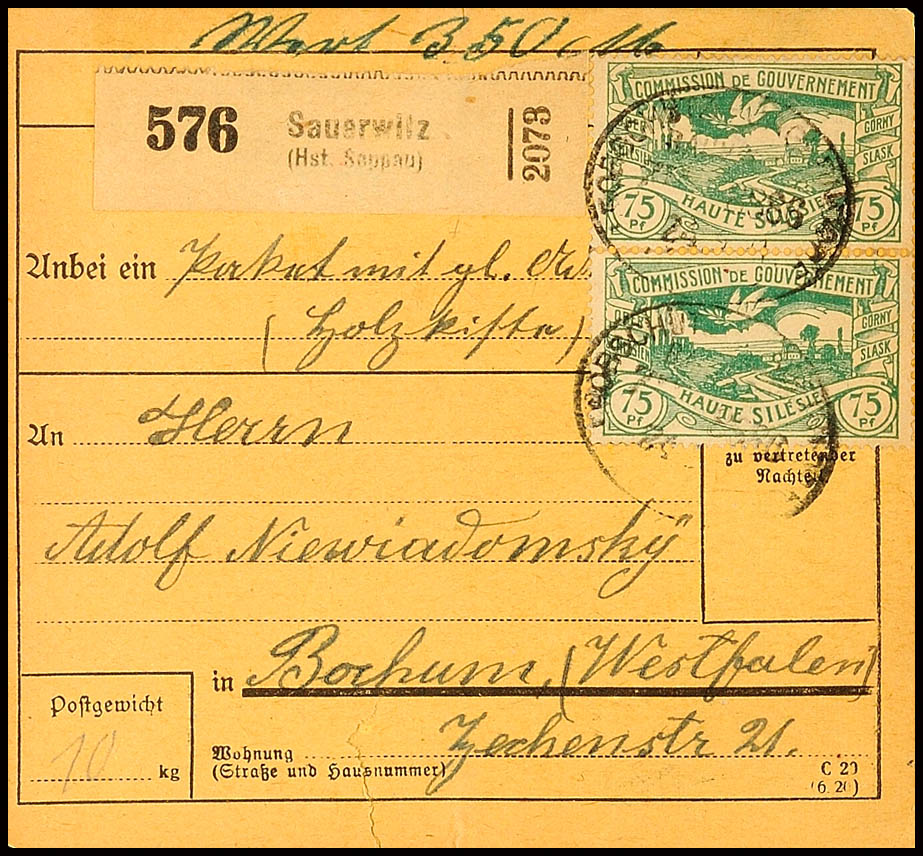 Wert 350 M
576
Sauerwitz
(Hst. Soppau)
2073
COMMISSION DE GOUVERNEMENT
OBER
GORNY
SLASK
HAUTE SILESIE
75 Pf
75 Pf
COMMISSION DE GOUVERNEMENT
OBER
GORNY
SLASK
HAUTE SILESIE
75 Pf
75 Pf
Anbei ein Paket mit gl. Adr.
(Holzkiste)
An Herrn
zu vertretender
Nachteil
Adolf Niewiadomsky
in Bochum, (Westfalen)
Postgewicht
10 kg
Zechenstr 21.
Wohnung
(Straße und Hausnummer)
C 20
(6. 20)